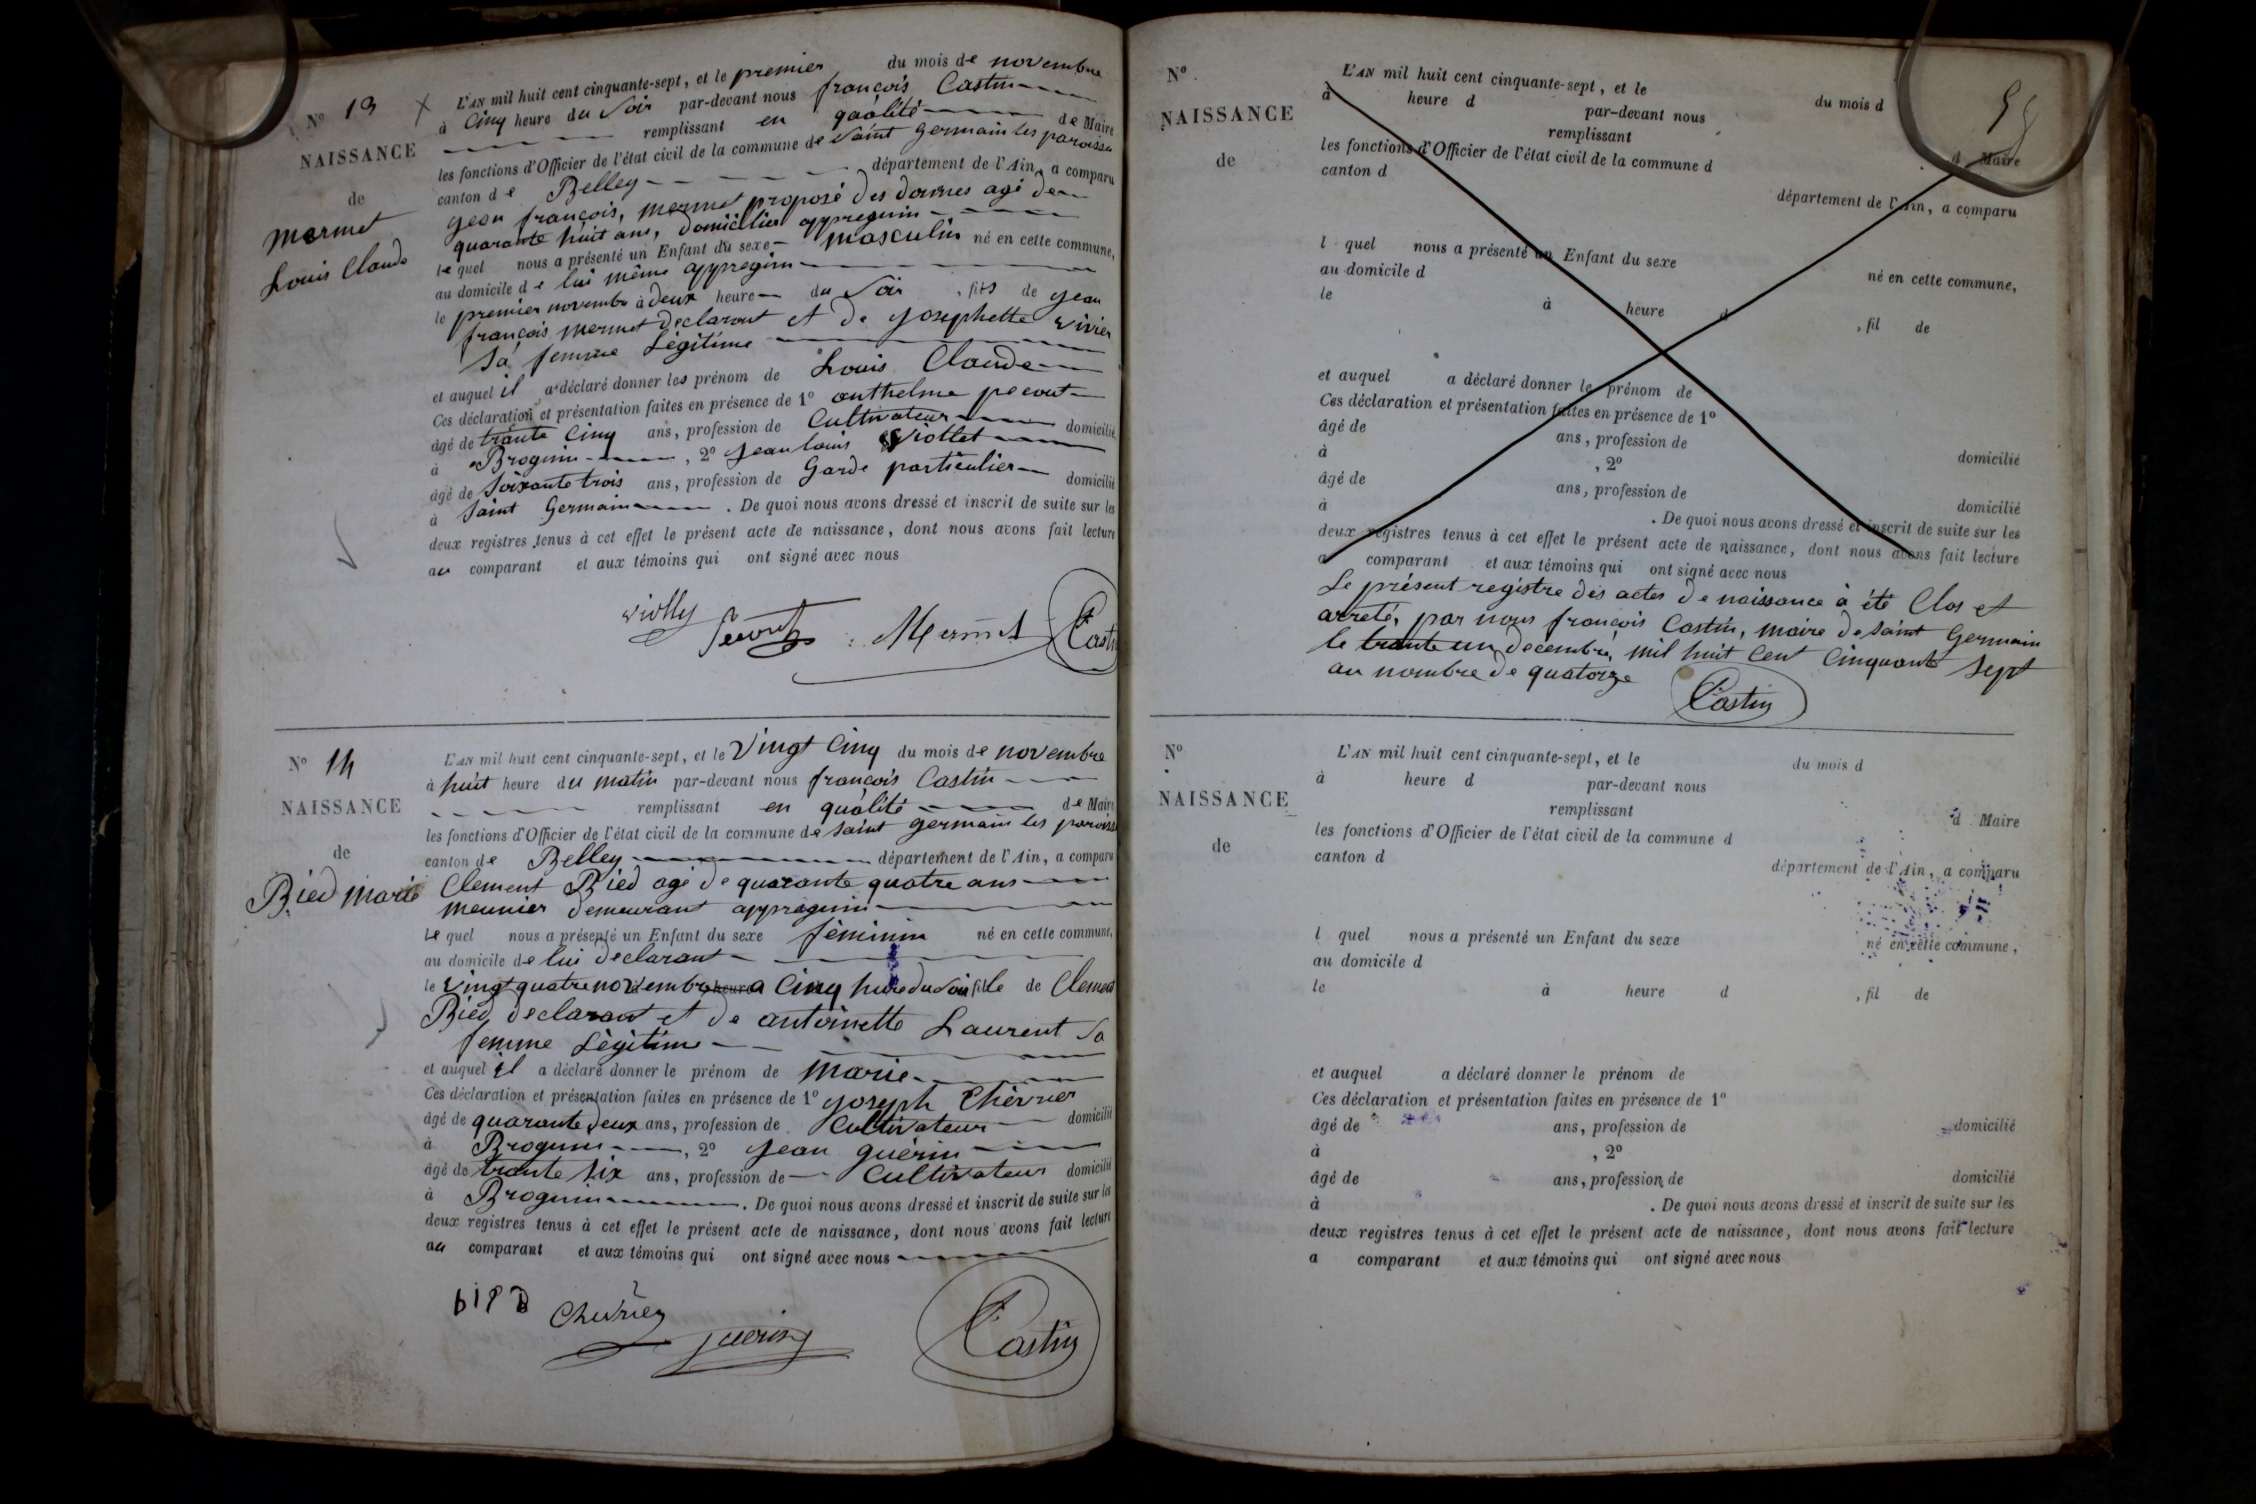 N° 13
NAISSANCE
de
Mermet
Louis Claude
L'AN mil huit cent cinquante-sept, et le premier du mois de novembre
à Cinq heure du Soir par-devant nous françois Castin
remplissant en qualité de Maire
les fonctions d'Officier de l'état civil de la commune de Saint Germain les paroisse
canton de Belley département de l'Ain, a comparu
Jean françois, mermet proposé des douanes agé de
quarante huit ans, domicilier appregnin
le quel nous a présenté un Enfant du sexe masculin né en cette commune,
au domicile de lui même appregnin
le premier novembre à deux heure du Soir, fils de Jean
françois mermet declarant et de Josephette Vivier
Sa femme Légitime
et auquel il a déclaré donner les prénom de Louis Claude
Ces déclaration et présentation faites en présence de 1° anthelme pecout
âgé de trante Cinq ans, profession de Cultivateur domicilié
à Brognin, 2° Jean louis Viollet
âgé de Soixante trois ans, profession de Garde particulier domicilié
à Saint Germain. De quoi nous avons dressé et inscrit de suite sur les
deux registres tenus à cet effet le présent acte de naissance, dont nous avons fait lecture
au comparant et aux témoins qui ont signé avec nous
violly Mermet Castin
N° 14
NAISSANCE
de
Bied marie
L'AN mil huit cent cinquante-sept, et le Vingt Cinq du mois de novembre
à huit heure du matin par-devant nous françois Castin
remplissant en qualité de Maire
les fonctions d'Officier de l'état civil de la commune de Saint germain les paroisse
canton de Belley département de l'Ain, a comparu
Clement Bied agé de quarante quatre ans
meunier demeurant appregnin
le quel nous a présenté un Enfant du sexe féminin né en cette commune,
au domicile de lui declarant
le vingt quatre novembre a Cinq hure du Soir fille de Clement
Bied declarant et de antoinette Laurent Sa
femme Légitime
et auquel il a déclaré donner le prénom de Marie
Ces déclaration et présentation faites en présence de 1° Joseph Chevrier
âgé de quarante deux ans, profession de Cultivateur domicilié
à Brognin, 2° Jean guérin
âgé de trante Six ans, profession de Cultivateur domicilié
à Brognin. De quoi nous avons dressé et inscrit de suite sur les
deux registres tenus à cet effet le présent acte de naissance, dont nous avons fait lecture
au comparant et aux témoins qui ont signé avec nous
bied Chevrier guerin Castin
N°
NAISSANCE
de
L'AN mil huit cent cinquante-sept, et le du mois d
à heure d par-devant nous
remplissant d Maire
les fonctions d'Officier de l'état civil de la commune d
canton d département de l'Ain, a comparu
l quel nous a présenté un Enfant du sexe né en cette commune,
au domicile d
le à heure d, fil de
et auquel a déclaré donner le prénom de
Ces déclaration et présentation faites en présence de 1°
âgé de ans, profession de domicilié
à, 2°
âgé de ans, profession de domicilié
à. De quoi nous avons dressé et inscrit de suite sur les
deux registres tenus à cet effet le présent acte de naissance, dont nous avons fait lecture
a comparant et aux témoins qui ont signé avec nous
Le présent registre des actes de naissance à été Clos et
arreté, par nous françois Castin, maire de Saint Germain
le trante un decembre, mil huit Cent Cinquante Sept
au nombre de quatorze Castin
N°
NAISSANCE
de
L'AN mil huit cent cinquante-sept, et le du mois d
à heure d par-devant nous
remplissant d Maire
les fonctions d'Officier de l'état civil de la commune d
canton d département de l'Ain, a comparu
l quel nous a présenté un Enfant du sexe né en cette commune,
au domicile d
le à heure d, fil de
et auquel a déclaré donner le prénom de
Ces déclaration et présentation faites en présence de 1°
âgé de ans, profession de domicilié
à, 2°
âgé de ans, profession de domicilié
à. De quoi nous avons dressé et inscrit de suite sur les
deux registres tenus à cet effet le présent acte de naissance, dont nous avons fait lecture
a comparant et aux témoins qui ont signé avec nous